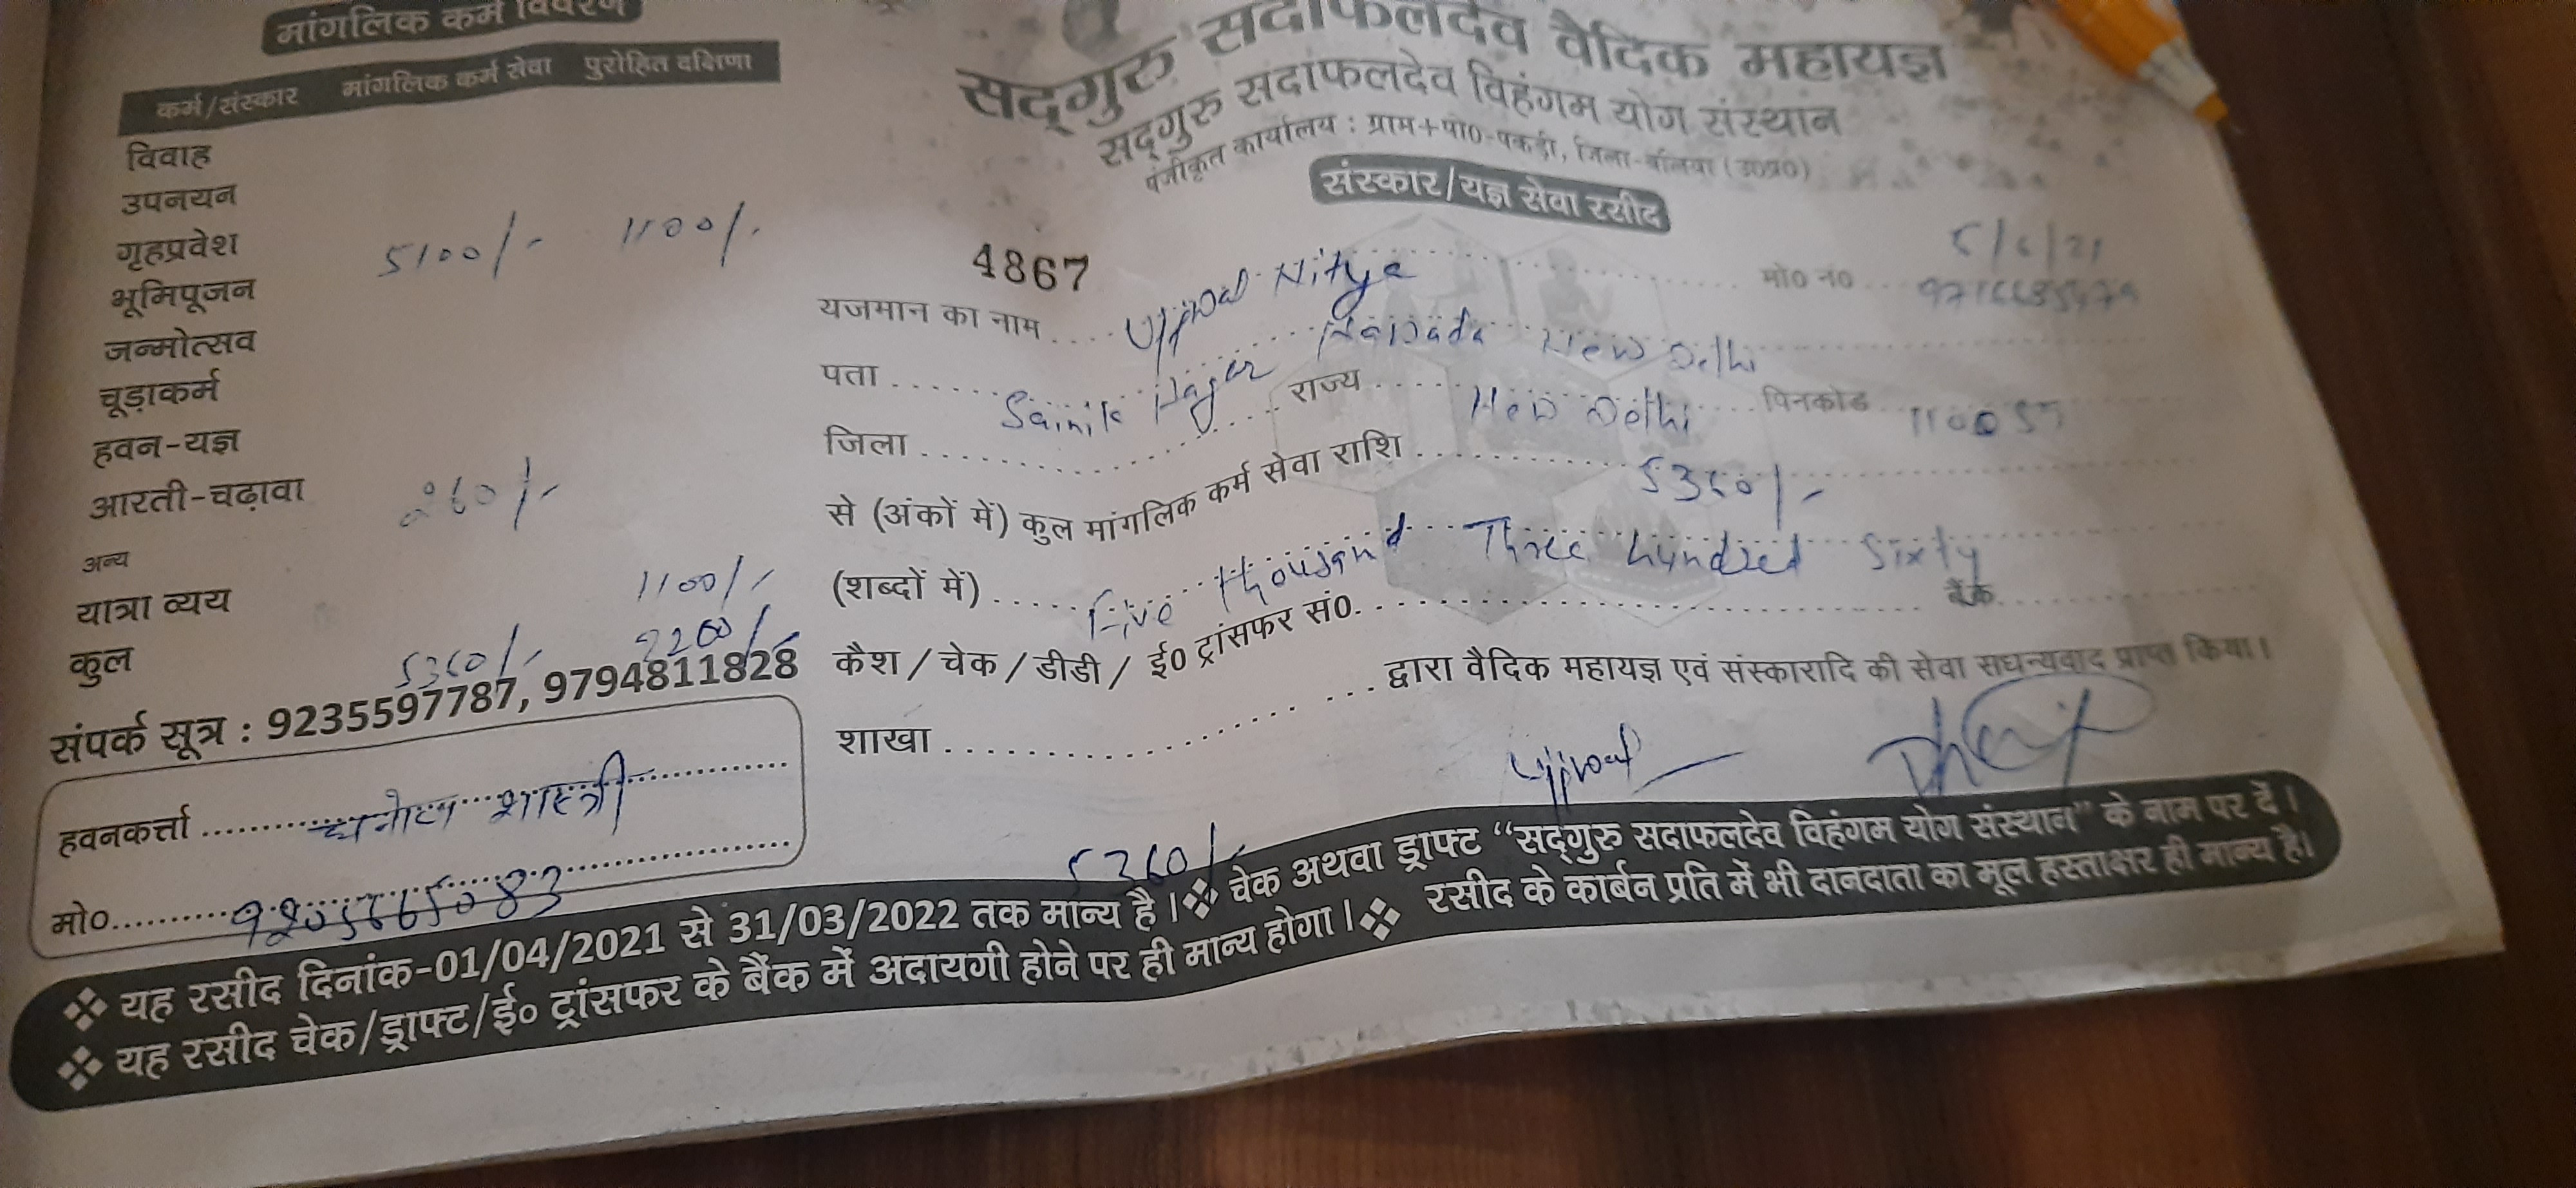 मांगलिक कर्म विवरण
कर्म/संस्कार मांगलिक कर्म सेवा पुरोहित दक्षिणा
विवाह
उपनयन
गृहप्रवेश 5100/- 1100/-
भूमिपूजन
जन्मोत्सव
चूड़ाकर्म
हवन-यज्ञ
आरती-चढ़ावा 260/-
अन्य
यात्रा व्यय 1100/-
कुल 5360/- 2200/-
संपर्क सूत्र : 9235597787, 9794811828
हवनकर्त्ता शास्त्री
मो०
सद्गुरु सदाफलदेव वैदिक महायज्ञ
सद्गुरु सदाफलदेव विहंगम योग संस्थान
पंजीकृत कार्यालय : ग्राम+पो०-पकड़ी, जिला-बलिया (उ०प्र०)
संस्कार/यज्ञ सेवा रसीद
4867
यजमान का नाम Ujjwal Nitya मो० नं०
पता Sainik Nagar New Delhi
जिला राज्य New Delhi पिनकोड
से (अंकों में) कुल मांगलिक कर्म सेवा राशि 5360/-
(शब्दों में) Five thousand Three hundred Sixty
कैश / चेक / डीडी / ई० ट्रांसफर सं० बैंक
शाखा द्वारा वैदिक महायज्ञ एवं संस्कारादि की सेवा सधन्यवाद प्राप्त किया।
Ujjwal
5360/-
❖ यह रसीद दिनांक-01/04/2021 से 31/03/2022 तक मान्य है। ❖ चेक अथवा ड्राफ्ट “सद्गुरु सदाफलदेव विहंगम योग संस्थान” के नाम पर दें।
❖ यह रसीद चेक/ड्राफ्ट/ई० ट्रांसफर के बैंक में अदायगी होने पर ही मान्य होगा। ❖ रसीद के कार्बन प्रति में भी दानदाता का मूल हस्ताक्षर ही मान्य है।